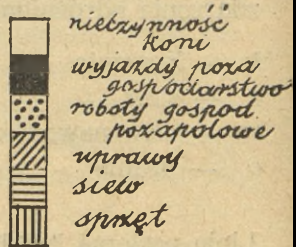 nieczynność
koni
wyjazdy poza
gospodarstwo
roboty gospod.
pozapolowe
uprawy
siew
sprzęt